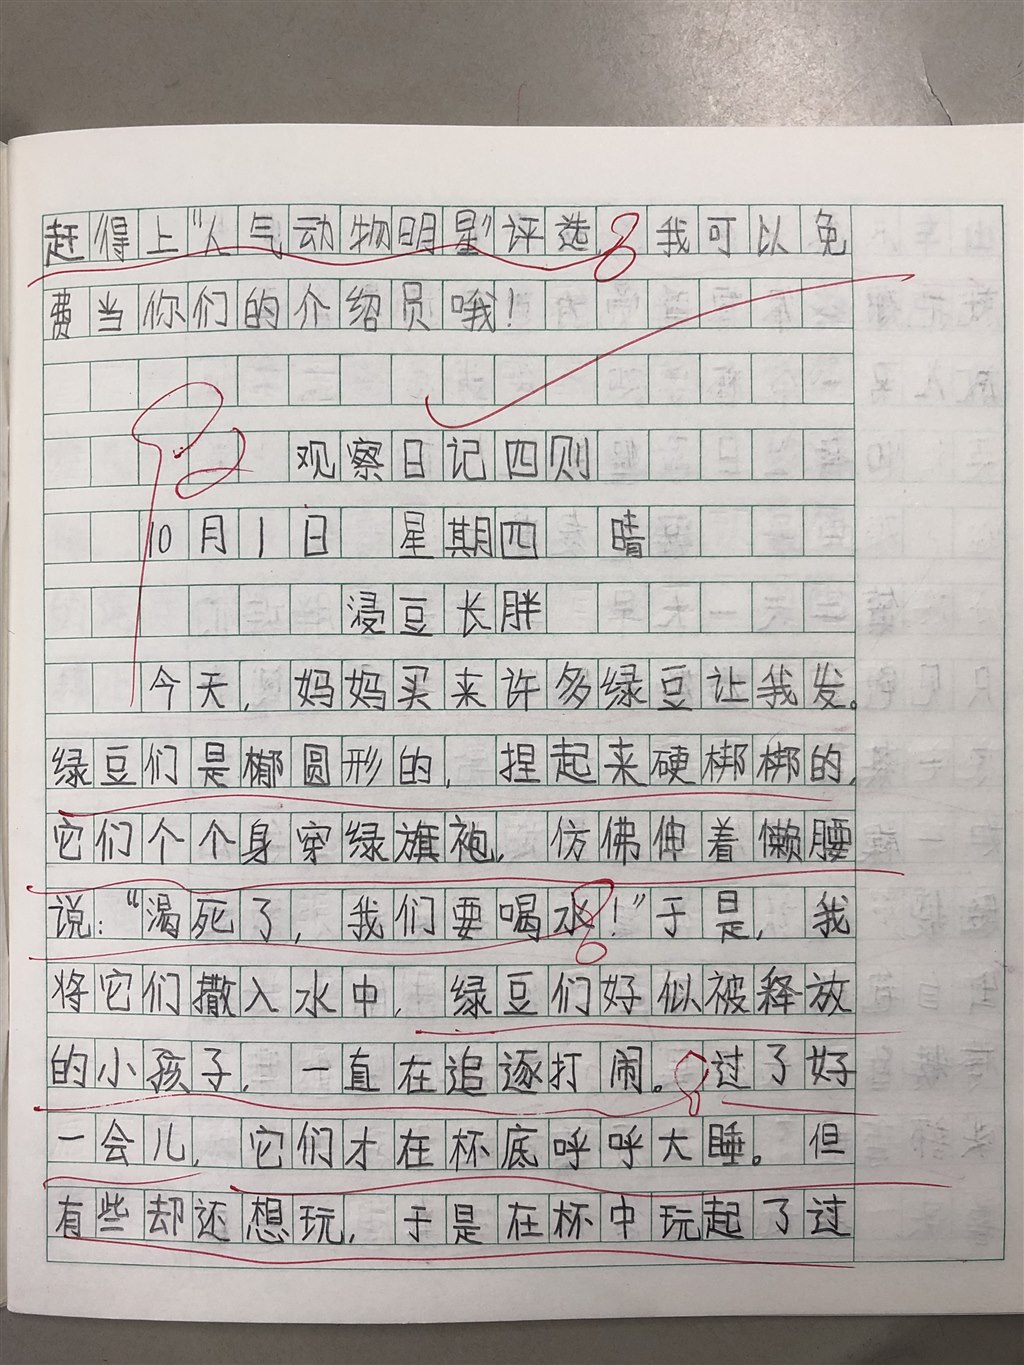 赶得上“人气动物明星”评选，我可以免
费当你们的介绍员哦！
观察日记四则
10月1日 星期四 晴
浸豆长胖
今天，妈妈买来许多绿豆让我发。
绿豆们是椭圆形的，捏起来硬梆梆的，
它们个个身穿绿旗袍，仿佛伸着懒腰
说：“渴死了，我们要喝水！”于是，我
将它们撒入水中，绿豆们好似被释放
的小孩子，一直在追逐打闹。过了好
一会儿，它们才在杯底呼呼大睡。但
有些却还想玩，于是在杯中玩起了过